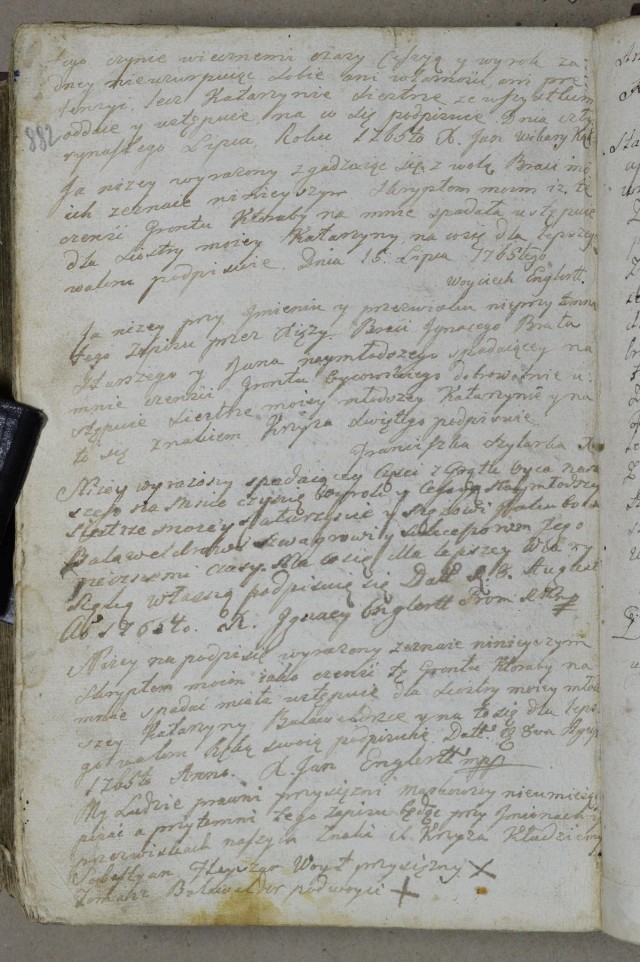 tego czynie wiecznemi czasy Cessyą y wyrok ża-
dney nieuzurpuiąc sobie ani własności, ani pre-
tensyi, lecz Katarzynie siestrze ze wszystkim
oddaie y ustępuie na co się podpisuie Dnia czte
882
rynastego Lipca, Roku 1765to X. Jan Wikary
Ja niżey wyrażony zgadzaiąc się z wolą Braci mo
ich zeznaie ninieyszym skryptem moim iż te
czenść Gruntu któraby na mnie spadała ustępuie
dla siostry moiey Katarzyny, na co się dla lepszego
waloru podpisuie. Dnia 15 Lipca 1765tego
Woyciech Englertt.
Ja niżey przy Jmieniu y przezwisku nieprzytomna
tego Zapisu przez Xięży Braci Jgnacego Brata
starszego y Jana naymłodszego spadaiącey na
mnie czenści Gruntu oycowskiego dobrowolnie u-
stępuie siestrze moiey młodszey Katarzynie y na
to się znakiem Krzyża Swiętego podpisuie
Franciszka Szylarka X
Niżey wyrażony spadaiącey części z Gruntu oyca nasz
szego na mnie czynię wyrok y Cessyą naymłodszey
siestrze moiey Katarzynie y mężowi Jakubowi
Balaweldrowi Szwagrowi y sukcessorom Jego
wiecznemi czasy. Na co się dla lepszey wiary
ręką własną podpisuię się Datt d. 8 August
Ao 1765to. X. Jgnacy Englertt
Niżey na podpisie wyrażony zeznaie ninieyszym
skryptem moim iako czenść tę Gruntu któraby na
mnie spadać miała ustępuie dla siostry moiey młod
szey Katarzyny Balaweldrzce y na to się dla lepsze
go waloru Ręką swoią podpisuię Datt d 8va Augus
1765to Anno. X. Jan Englertt mpp
My Ludzie prawni przysięźni Markowscy nieumieiąc
pisać a przytomni tego zapisu będąc przy Jmionach y
przezwiskach naszych Znaki ś. Krzyża Kładziemy
Sebestyan Heyszar Woyt przysięźny X
Tomasz Balawelder podwoyci +